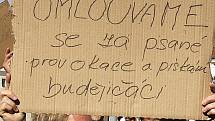 OMLOUVÁME
se za psané
provokace a pískám
budejičáci